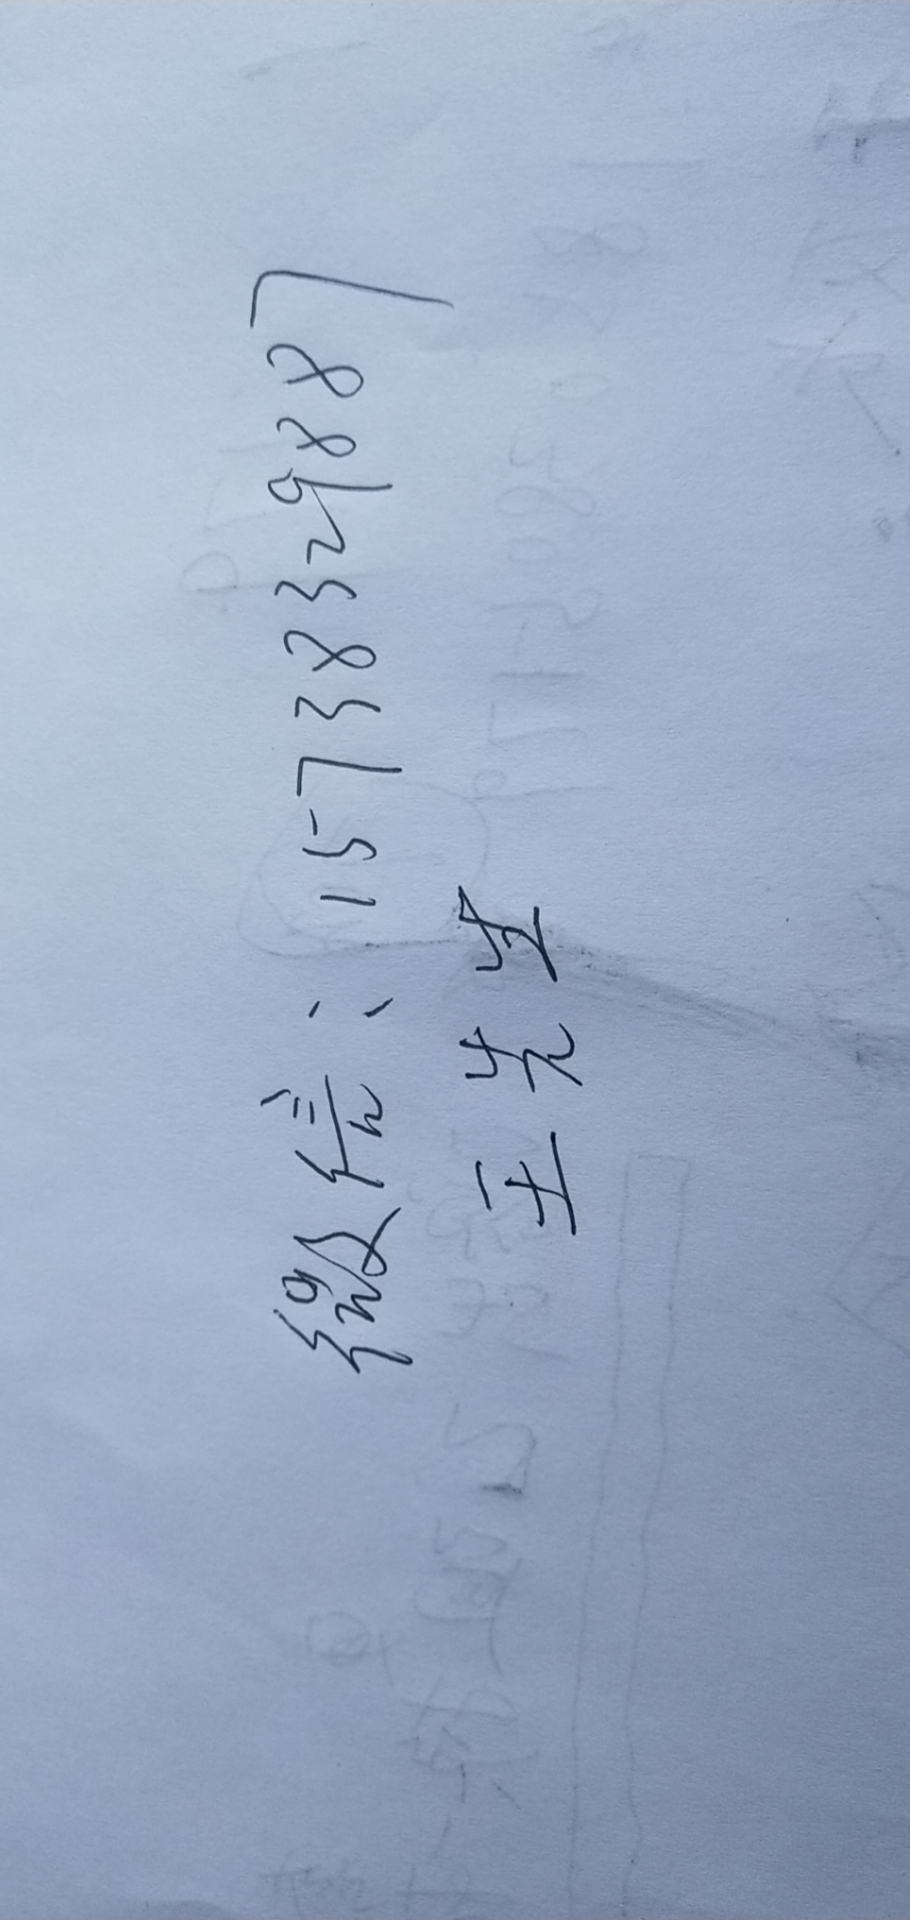 微信：15738329887
王先生